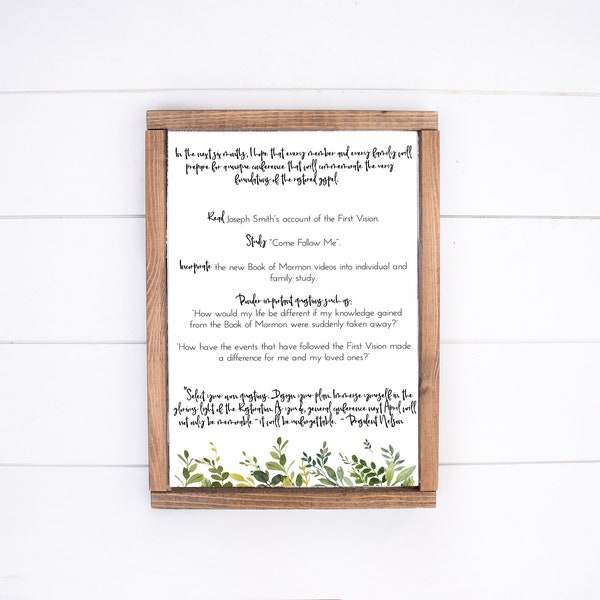 In the next six months, I hope that every member and every family will
prepare for a unique conference that will commemorate the very
foundations of the restored gospel.
Read Joseph Smith's account of the First Vision.
Study "Come Follow Me".
Incorporate the new Book of Mormon videos into individual and
family study.
Ponder important questions such as;
"How would my life be different if my knowledge gained
from the Book of Mormon were suddenly taken away?"
"How have the events that have followed the First Vision made
a difference for me and my loved ones?"
"Select your own questions. Design your plan. Immerse yourself in the
glorious light of the Restoration. As you do, general conference next April will
not only be memorable - it will be unforgettable. - President Nelson